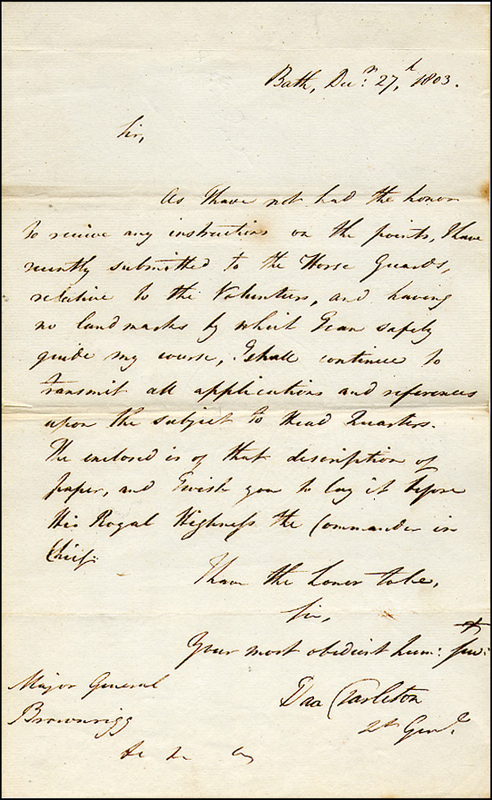 Bath, Decr. 27th, 1803.
Sir,
As I have not had the honor
to receive any instructions on the points, I have
recently submitted to the Horse Guards,
relative to the Volunteers, and having
no landmarks by which I can safely
guide my course, I shall continue to
transmit all applications and references
upon the subject to Head Quarters.
The enclosed is of that description of
paper, and I wish you to lay it before
His Royal Highness the Commander in
Chief.
I have the honor to be,
Sir,
Your most obedient hum:
Major General
Brownrigg
Tarleton
Genl.